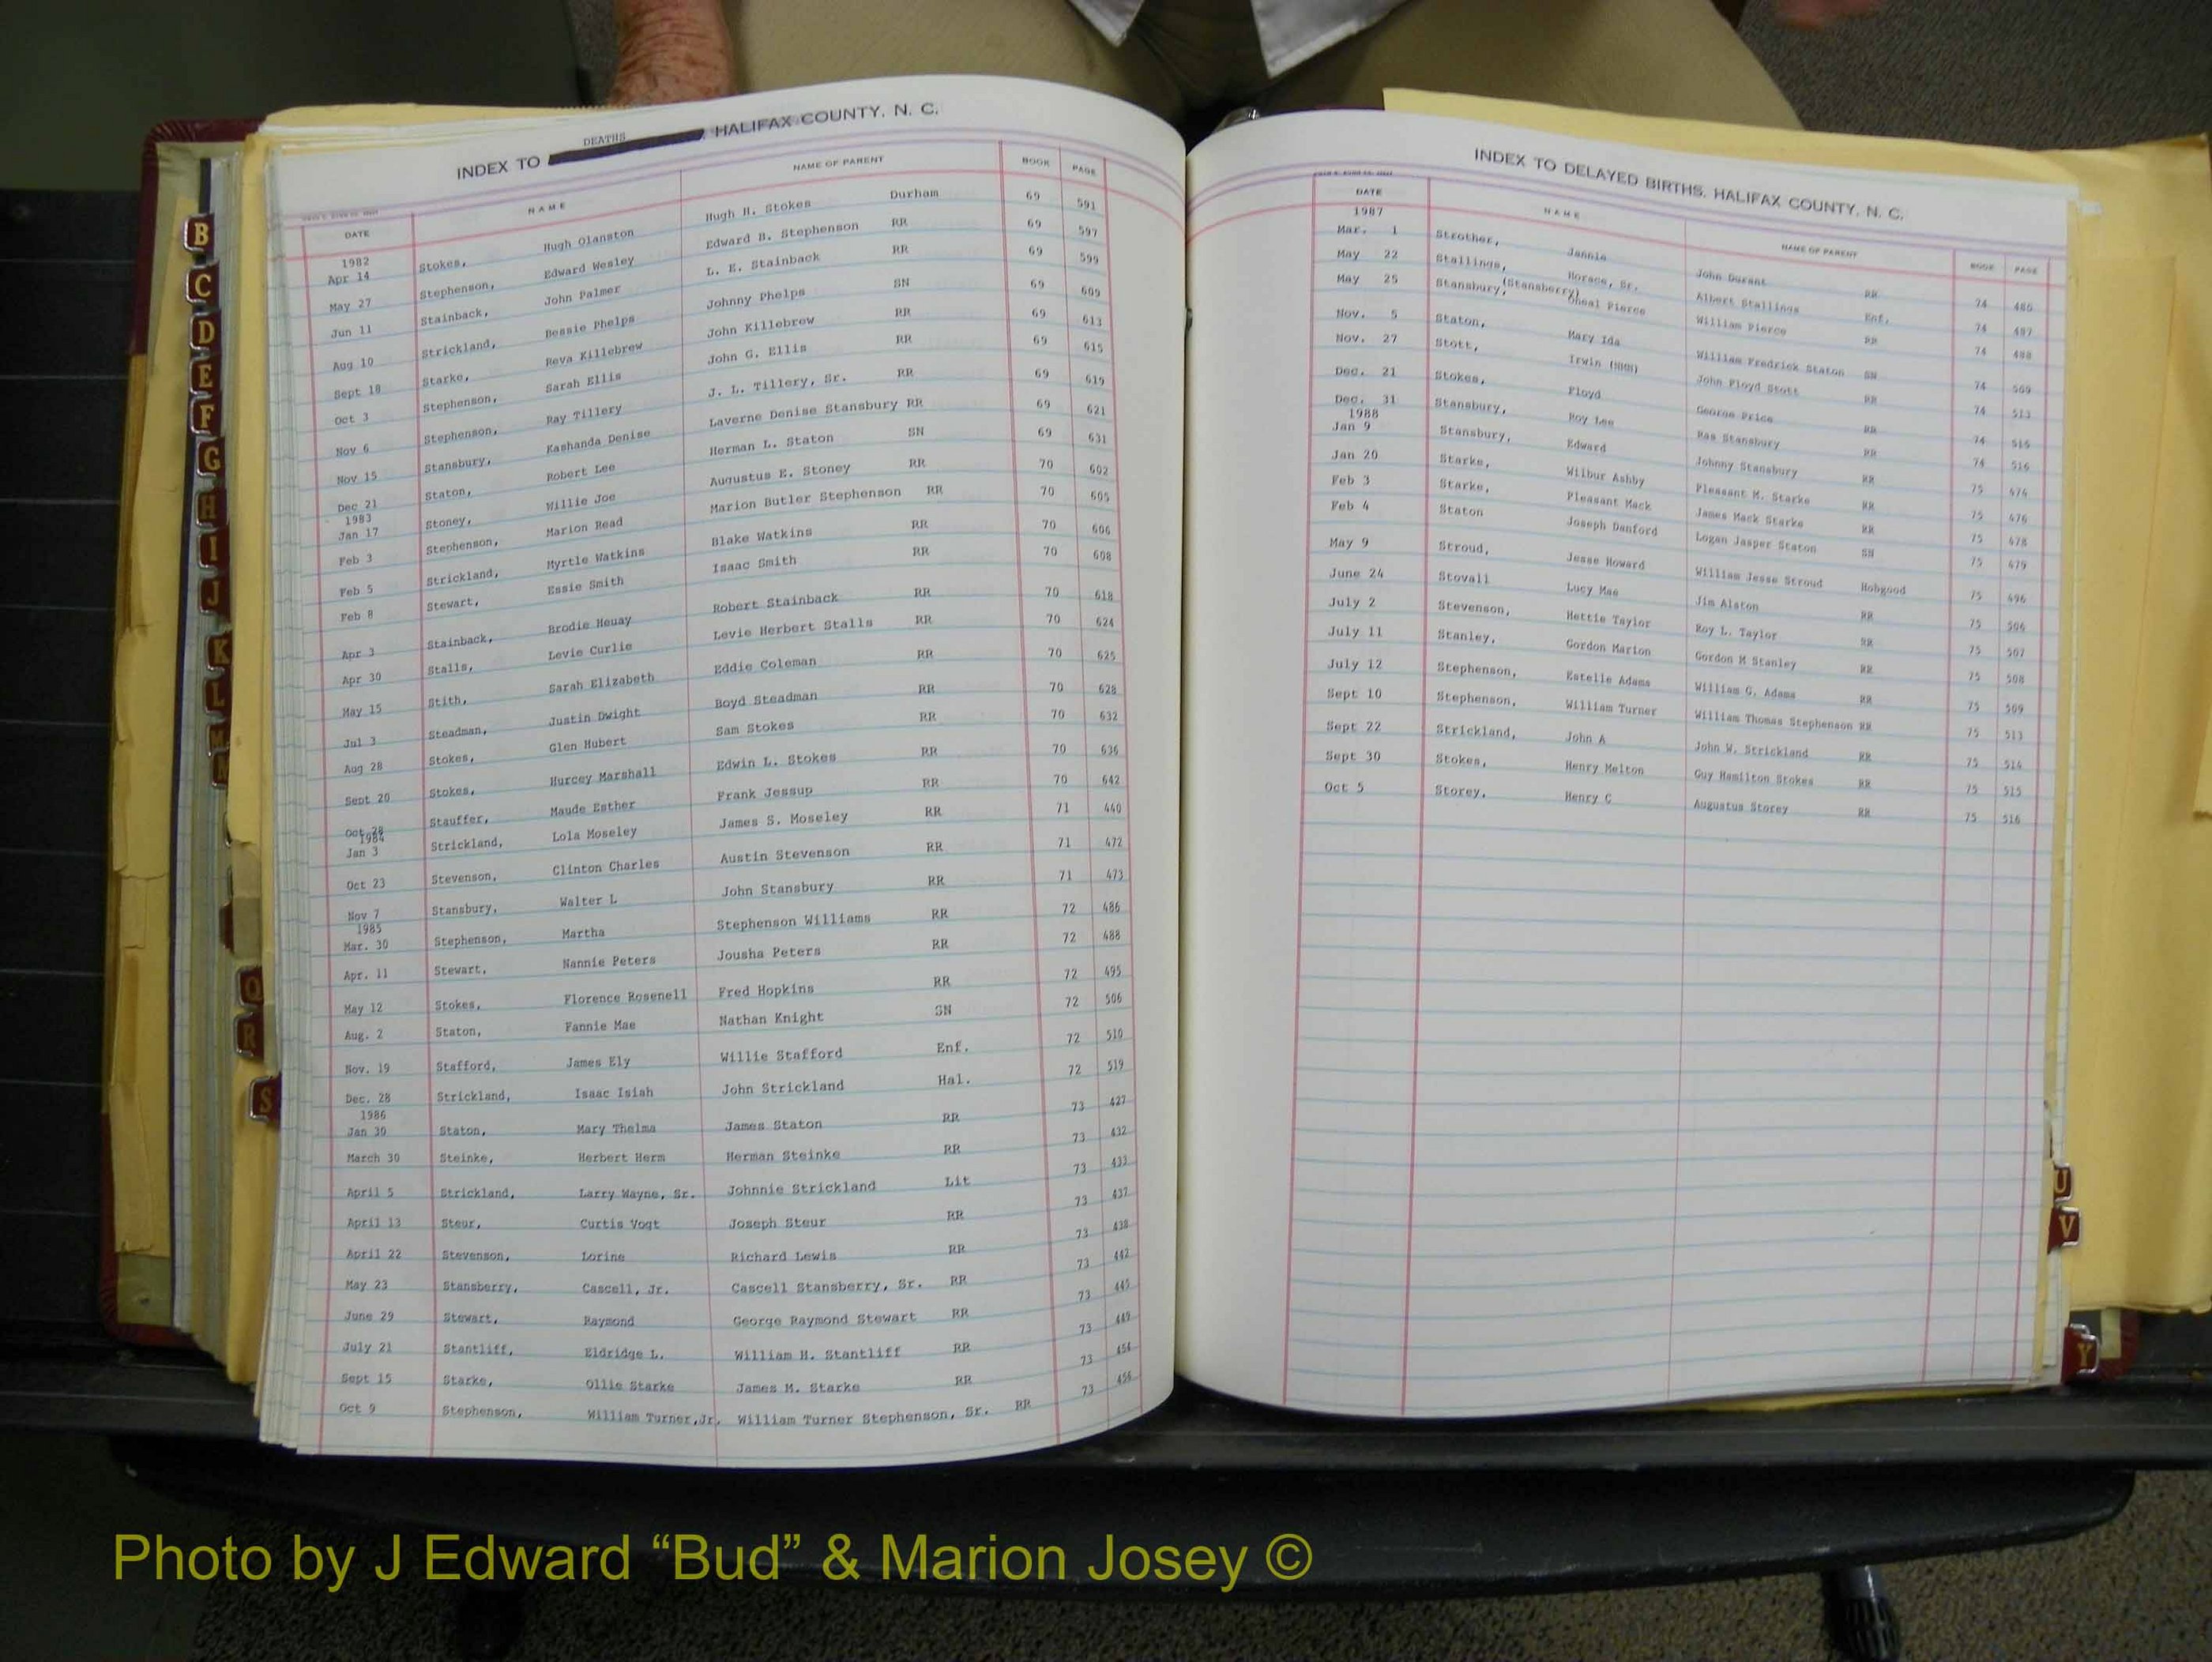 INDEX TO DEATHS, HALIFAX COUNTY, N. C.
DATE NAME NAME OF PARENT BOOK PAGE
1982
Apr 14 Stokes, Hugh Olanston Hugh H. Stokes Durham 69 591
May 27 Stephenson, Edward Wesley Edward B. Stephenson RR 69 597
Jun 11 Stainback, John Palmer L. E. Stainback RR 69 599
Aug 10 Strickland, Bessie Phelps Johnny Phelps SN 69 609
Sept 18 Starke, Reva Killebrew John Killebrew RR 69 613
Oct 3 Stephenson, Sarah Ellis John G. Ellis RR 69 615
Nov 6 Stephenson, Ray Tillery J. L. Tillery, Sr. RR 69 619
Nov 15 Stansbury, Kashanda Denise Laverne Denise Stansbury RR 69 621
Dec 21 Staton, Robert Lee Herman L. Staton SN 69 631
1983
Jan 17 Stoney, Willie Joe Augustus E. Stoney RR 70 602
Feb 3 Stephenson, Marion Read Marion Butler Stephenson RR 70 605
Feb 5 Strickland, Myrtle Watkins Blake Watkins RR 70 606
Feb 8 Stewart, Essie Smith Isaac Smith RR 70 608
Apr 3 Stainback, Brodie Heuay Robert Stainback RR 70 618
Apr 30 Stalls, Levie Curlie Levie Herbert Stalls RR 70 624
May 15 Stith, Sarah Elizabeth Eddie Coleman RR 70 625
Jul 3 Steadman, Justin Dwight Boyd Steadman RR 70 628
Aug 28 Stokes, Glen Hubert Sam Stokes RR 70 632
Sept 20 Stokes, Hurcey Marshall Edwin L. Stokes RR 70 636
Oct 28 Stauffer, Maude Esther Frank Jessup RR 70 642
1984
Jan 3 Strickland, Lola Moseley James S. Moseley RR 71 440
Oct 23 Stevenson, Clinton Charles Austin Stevenson RR 71 472
Nov 7 Stansbury, Walter L John Stansbury RR 71 473
1985
Mar. 30 Stephenson, Martha Stephenson Williams RR 72 486
Apr. 11 Stewart, Nannie Peters Jousha Peters RR 72 488
May 12 Stokes, Florence Rosenell Fred Hopkins RR 72 495
Aug. 2 Staton, Fannie Mae Nathan Knight SN 72 506
Nov. 19 Stafford, James Ely Willie Stafford Enf. 72 510
Dec. 28 Strickland, Isaac Isiah John Strickland Hal. 72 519
1986
Jan 30 Staton, Mary Thelma James Staton RR 73 427
March 30 Steinke, Herbert Herm Herman Steinke RR 73 432
April 5 Strickland, Larry Wayne, Sr. Johnnie Strickland Lit 73 433
April 13 Steur, Curtis Vogt Joseph Steur RR 73 437
April 22 Stevenson, Lorine Richard Lewis RR 73 438
May 23 Stansberry, Cascell, Jr. Cascell Stansberry, Sr. RR 73 442
June 29 Stewart, Raymond George Raymond Stewart RR 73 445
July 21 Stantliff, Eldridge L. William H. Stantliff RR 73 449
Sept 15 Starke, Ollie Starke James M. Starke RR 73 454
Oct 9 Stephenson, William Turner,Jr. William Turner Stephenson, Sr. RR 73 456
INDEX TO DELAYED BIRTHS, HALIFAX COUNTY, N. C.
DATE NAME NAME OF PARENT BOOK PAGE
1987
Mar. 1 Strother, Jannie John Durant RR 74 486
May 22 Stallings, Horace, Sr. Albert Stallings Enf. 74 487
May 25 Stansbury, (Stansberry) Oneal Pierce William Pierce RR 74 488
Nov. 5 Staton, Mary Ida William Fredrick Staton SN 74 509
Nov. 27 Stott, Irwin (NMN) John Floyd Stott RR 74 513
Dec. 21 Stokes, Floyd George Price RR 74 515
Dec. 31 Stansbury, Roy Lee Ras Stansbury RR 74 516
1988
Jan 9 Stansbury, Edward Johnny Stansbury RR 75 474
Jan 20 Starke, Wilbur Ashby Pleasant M. Starke RR 75 476
Feb 3 Starke, Pleasant Mack James Mack Starke RR 75 478
Feb 4 Staton Joseph Danford Logan Jasper Staton SN 75 479
May 9 Stroud, Jesse Howard William Jesse Stroud Hobgood 75 496
June 24 Stovall Lucy Mae Jim Alston RR 75 504
July 2 Stevenson, Hettie Taylor Roy L. Taylor RR 75 507
July 11 Stanley, Gordon Marion Gordon M Stanley RR 75 508
July 12 Stephenson, Estelle Adams William G. Adams RR 75 509
Sept 10 Stephenson, William Turner William Thomas Stephenson RR 75 513
Sept 22 Strickland, John A John W. Strickland RR 75 514
Sept 30 Stokes, Henry Melton Guy Hamilton Stokes RR 75 515
Oct 5 Storey, Henry C Augustus Storey RR 75 516
B
C
D
E
F
G
H
I
J
K
L
M
N
Q
R
S
U
V
Y
Photo by J Edward “Bud” & Marion Josey ©